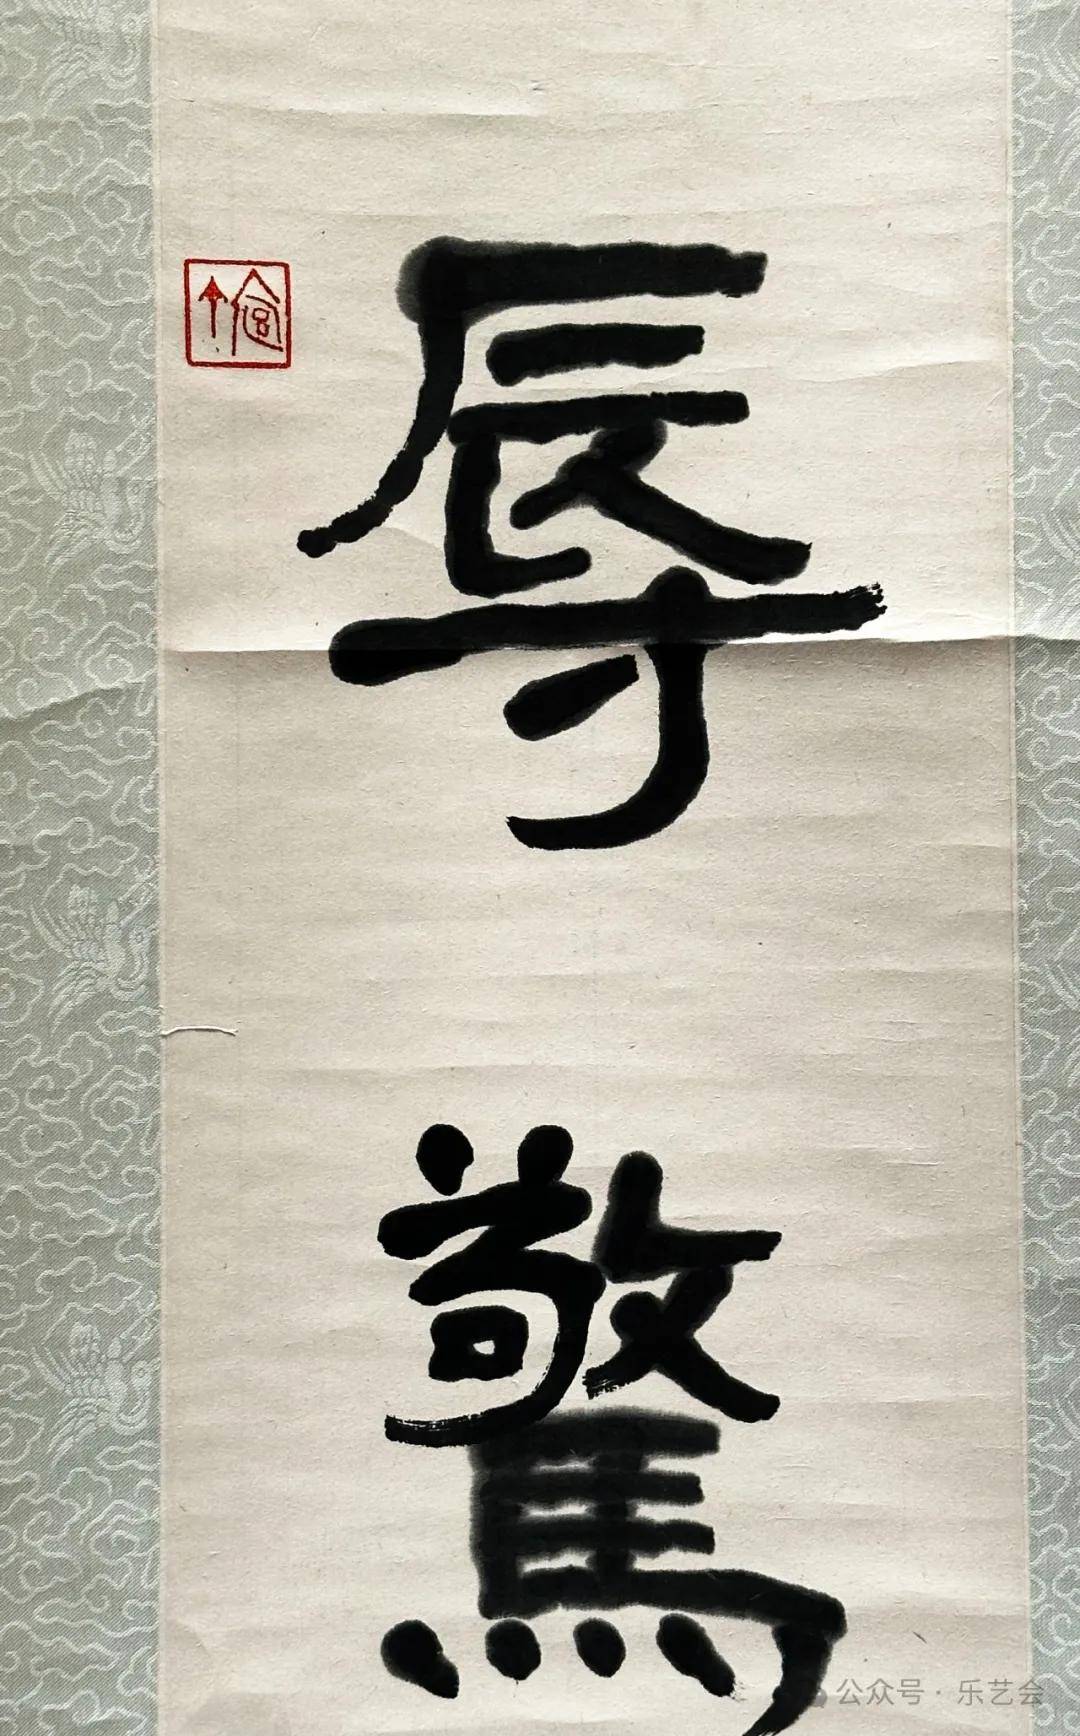 辱
驚
公众号·乐艺会